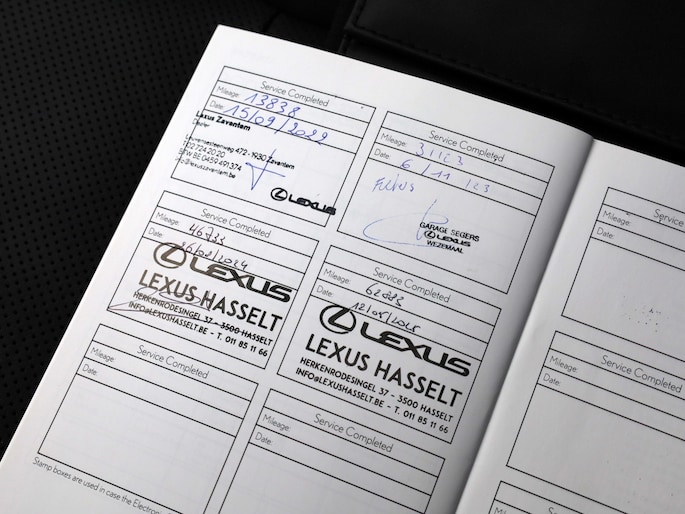 Service Completed
Mileage: 13838
Date: 15/09/2022
Lexus Zaventem
Dealer
Leuvensesteenweg 472 - 1930 Zaventem
T 02 724 20 20
BTW BE 0459 491 374
info@lexuszaventem.be
LEXUS
Service Completed
Mileage:
Date: 6 / 11 / 23
GARAGE SEGERS
LEXUS
WEZEMAAL
Service Completed
Mileage: 46733
Date:
LEXUS
LEXUS HASSELT
HERKENRODESINGEL 37 - 3500 HASSELT
INFO@LEXUSHASSELT.BE - T. 011 85 11 66
Service Completed
Mileage:
Date:
LEXUS
LEXUS HASSELT
HERKENRODESINGEL 37 - 3500 HASSELT
INFO@LEXUSHASSELT.BE - T. 011 85 11 66
Service Completed
Mileage:
Date:
Service Completed
Mileage:
Date:
Stamp boxes are used in case the Electron
Service
Mileage:
Date:
Service
Mileage:
Date:
Mileage:
Date: